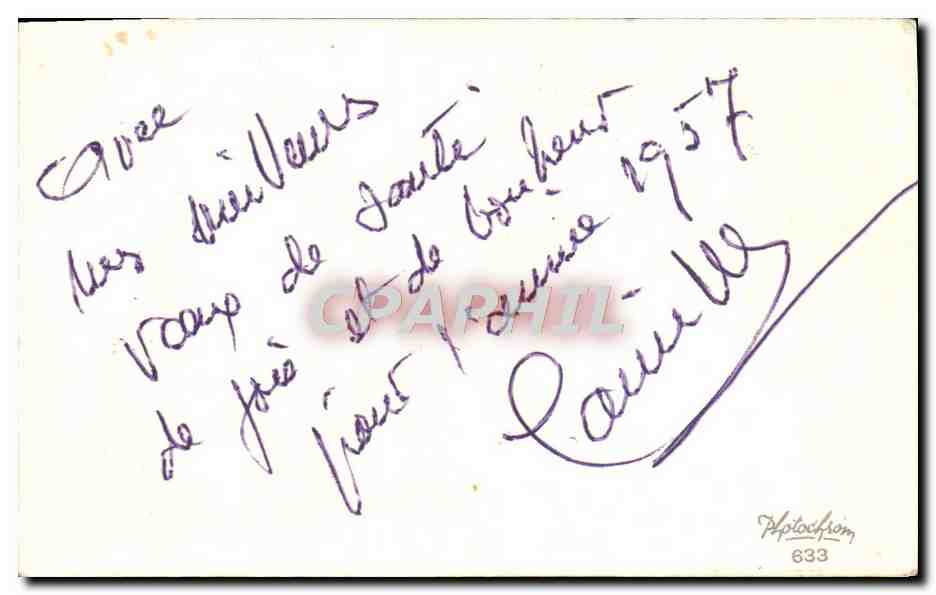 Avec
mes meilleurs
vœux de santé
de joie et de bonheur
pour l'année 1957
Camille
CPAPHIL
Photochrom
633